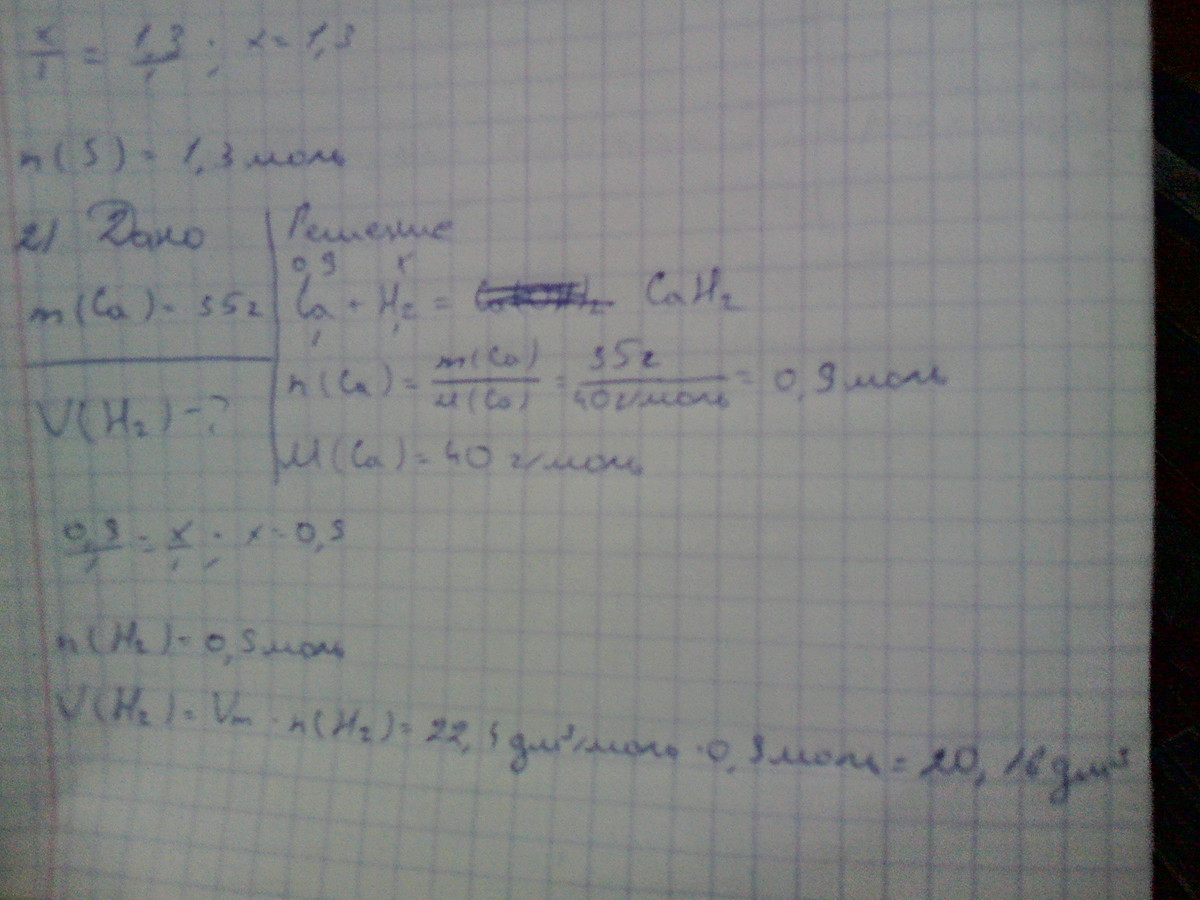 x/1 = 1,3/1 ; x = 1,3
n(S) = 1,3 моль
2) Дано
m(Ca) - 35г
V(H₂) - ?
Решение
0,9 x
Ca + H₂ = CaH₂
1 1
n(Ca) = m(Ca)/M(Ca) = 35г/40г/моль = 0,9 моль
M(Ca) = 40 г/моль
0,9/1 = x/1 ; x = 0,9
n(H₂) = 0,9 моль
V(H₂) = Vm · n(H₂) = 22,4 дм³/моль · 0,9 моль = 20,16 дм³